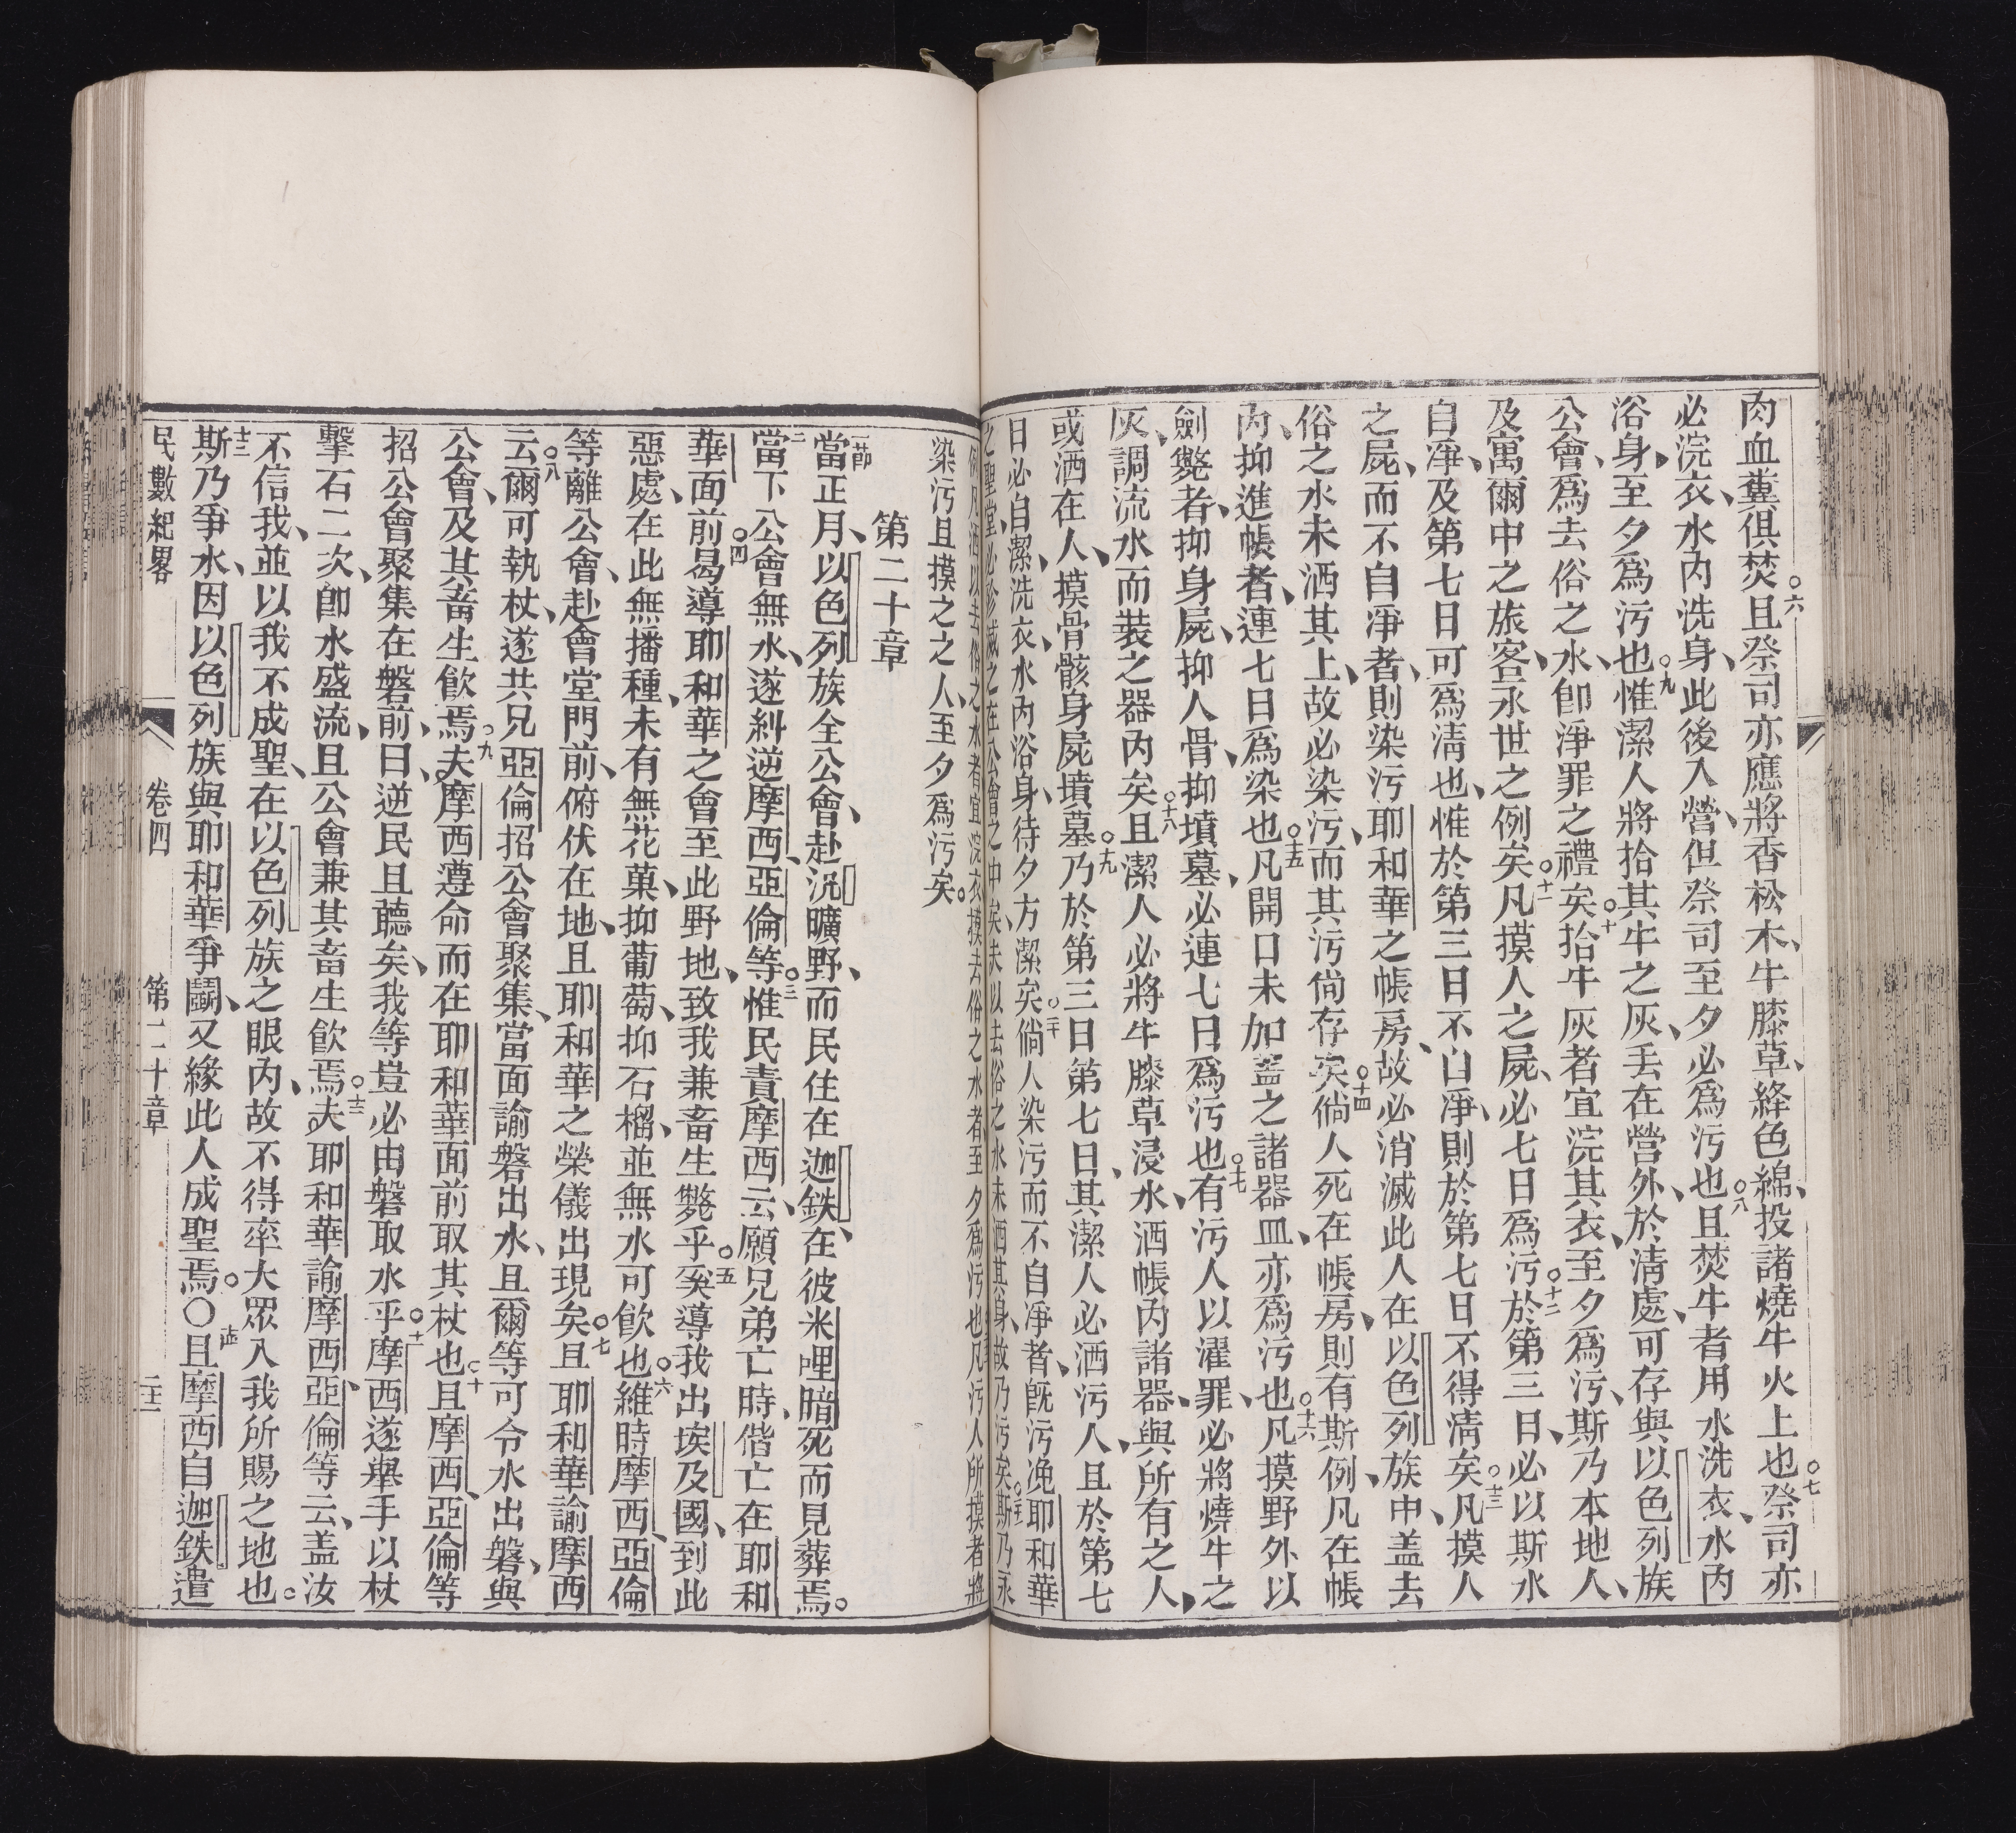 肉血糞俱焚。六且祭司亦應將香松木、牛膝草、絳色綿、投諸燒牛火上也。七祭司亦
必浣衣、水內洗身、此後入營、但祭司至夕必爲污也。八且焚牛者用水洗衣、水內
浴身、至夕爲污也。九惟潔人將拾其牛之灰、丟在營外、於清處、可存與以色列族
公會、爲去俗之水、卽淨罪之禮矣。十拾牛灰者宜浣其衣、至夕爲污、斯乃本地人、
及寓爾中之旅客、永世之例矣。十一凡摸人之屍、必七日爲污。十二於第三日、必以斯水
自凈、及第七日可爲清也、惟於第三日不自凈、則於第七日不得清矣。十三凡摸人
之屍、而不自凈者、則染污耶和華之帳房、故必消滅此人在以色列族中、盖去
俗之水未洒其上、故必染污、而其污尙存矣。十四倘人死在帳房、則有斯例、凡在帳
內、抑進帳者、連七日爲染也。十五凡開口未加蓋之諸器皿、亦爲污也。十六凡摸野外以
劍斃者、抑身屍、抑人骨、抑墳墓、必連七日爲污也。十七有污人以濯罪、必將燒牛之
灰、調流水而裝之器內矣。十八且潔人必將牛膝草浸水、洒帳內諸器、與所有之人、
或洒在人、摸骨骸身屍墳墓。十九乃於第三日第七日、其潔人必洒污人、且於第七
日必自潔、洗衣、水內浴身、待夕方潔矣。二十倘人染污而不自凈者、旣污凂耶和華
之聖堂、必殄滅之在公會之中矣、夫以去俗之水未洒其身、故乃污矣。斯乃永
例、凡洒以去俗之水者、宜浣衣、摸去俗之水者、至夕爲污也、凡污人所摸者、將
染污、且摸之之人、至夕爲污矣。
第二十章
節當正月、以色列族全公會、赴㳄曠野、而民住在迦鉄、在彼米哩暗死而見葬焉。
二當下公會無水、遂糾逆摩西、亞倫等。三惟民責摩西云、願兄弟亡時、偕亡在耶和
華面前。四曷導耶和華之會至此野地、致我兼畜生斃乎。五奚導我出埃及國、到此
惡處、在此無播種、未有無花菓、抑葡萄、抑石榴、並無水可飮也。六維時摩西、亞倫
等離公會、赴會堂門前、俯伏在地、且耶和華之榮儀出現矣。七且耶和華諭摩西
云。八爾可執杖、遂共兄亞倫招公會聚集、當面諭磐出水、且爾等可令水出磐、與
公會、及其畜生飮焉。九夫摩西遵命而在耶和華面前取其杖也。十且摩西、亞倫等
招公會聚集在磐前、曰、逆民且聽矣、我等豈必由磐取水乎。十一摩西遂舉手以杖
擊石二次、卽水盛流、且公會兼其畜生飮焉。十二夫耶和華諭摩西、亞倫等云、盖汝
不信我、並以我不成聖、在以色列族之眼內、故不得率大眾入我所賜之地也。
十三斯乃爭水、因以色列族與耶和華爭鬬、又緣此人成聖焉。〇十四且摩西自迦鉄遣
民數紀畧　卷四　第二十章